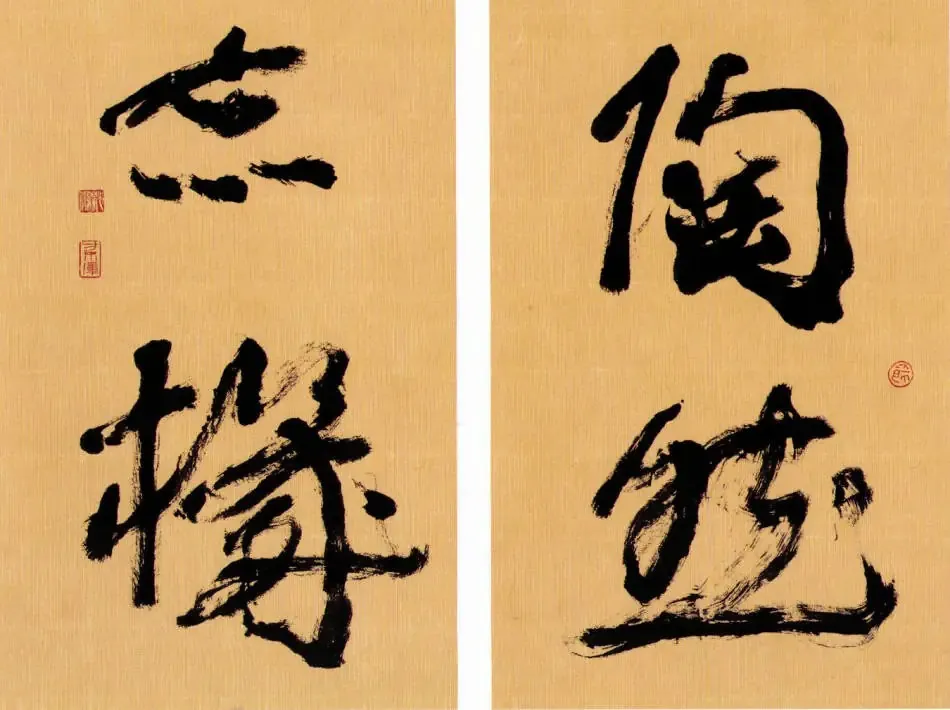 陶然
忘機